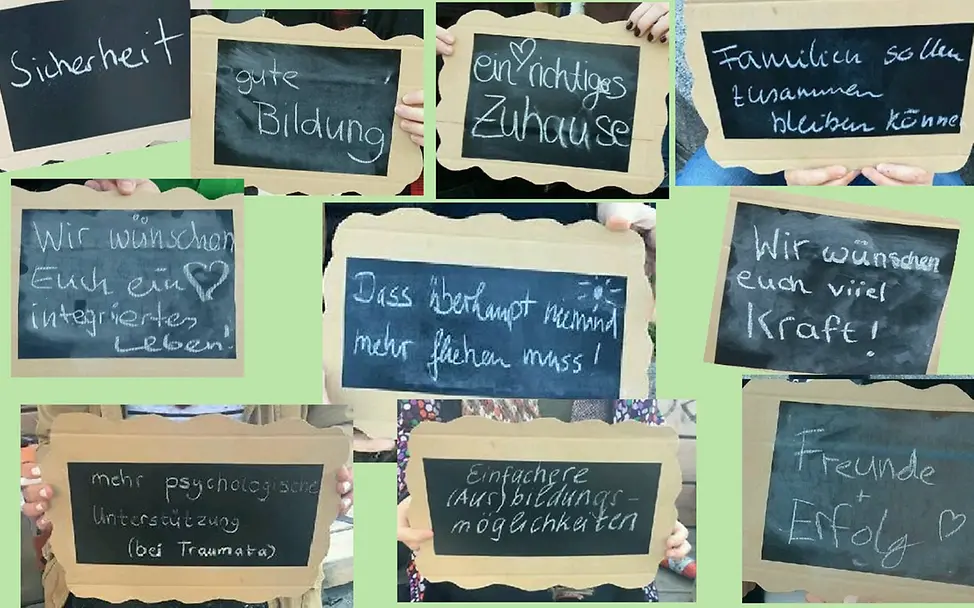 Sicherheit
gute
Bildung
ein richtiges
Zuhause
Familien sollen
zusammen
bleiben könne
Wir wünschen
Euch ein
integriertes
Leben!
Dass überhaupt niemand
mehr fliehen muss!
Wir wünschen
euch viiel
Kraft!
mehr psychologische
Unterstützung
(bei Traumata)
Einfachere
(Aus)bildungs-
möglichkeiten
Freunde
+
Erfolg